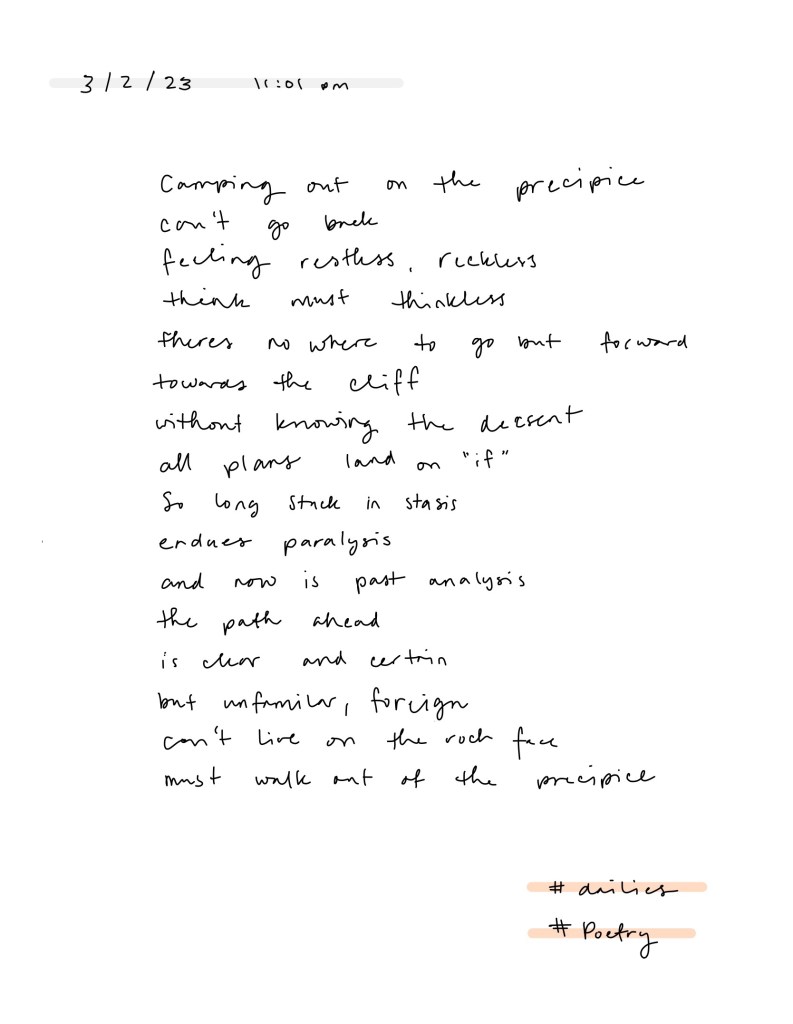 3/2/23 11:01 pm
Camping out on the precipice
can't go back
feeling restless, reckless
think must thinkless
theres no where to go but forward
towards the cliff
without knowing the decsent
all plans land on "if"
So long stuck in stasis
endues paralysis
and now is past analysis
the path ahead
is clear and certain
but unfamilar, foreign
can't live on the rock face
must walk out of the precipice
# dailies
# Poetry